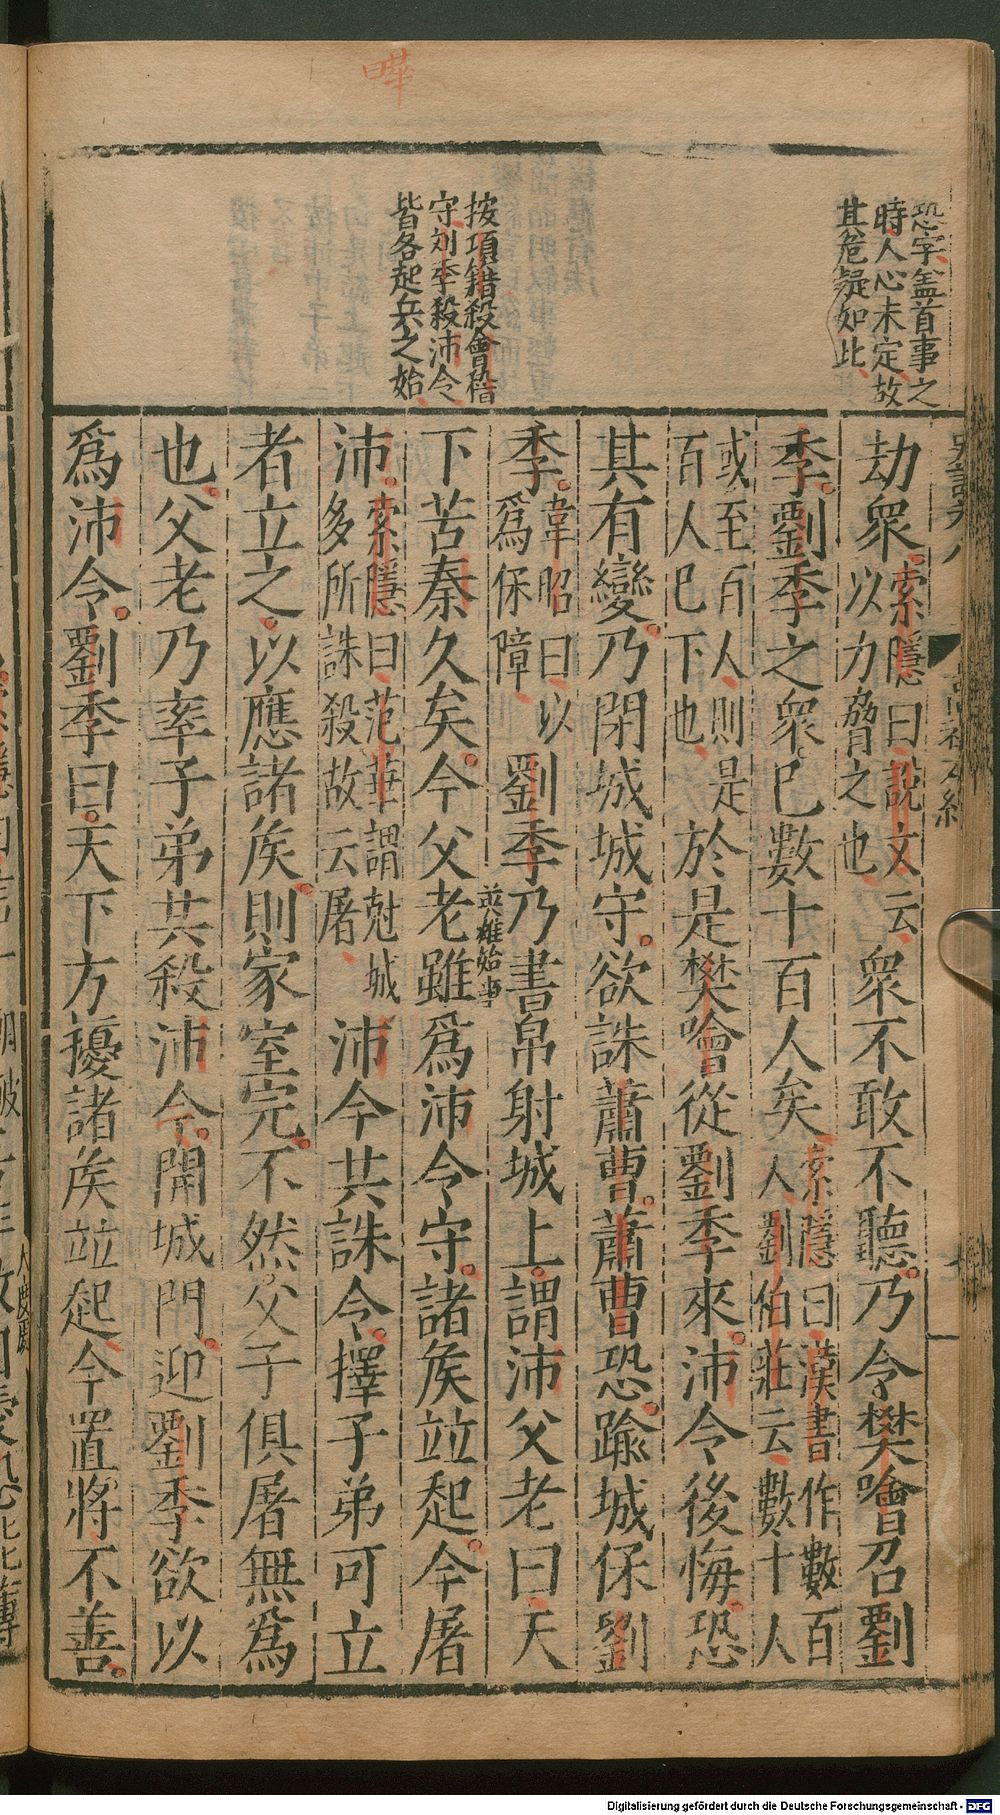 嘩
恐字葢首事之
時人心未定故
其危疑如此
按項籍殺會稽
守刘季殺沛令
皆各起兵之始
劫衆索隱曰說文云以力脅之也衆不敢不聽乃令樊噲召劉
季劉季之衆已數十百人矣索隱曰漢書作數百人劉伯莊云數十人
或至百人則是百人已下也於是樊噲從劉季來沛令後悔恐
其有變乃閉城城守欲誅蕭曹蕭曹恐踰城保劉
季韋昭曰以爲保障劉季乃書帛射城上謂沛父老曰天
英雄始事
下苦秦久矣今父老雖爲沛令守諸矦竝起今屠
沛索隱曰范華謂尅城多所誅殺故云屠沛今共誅令擇子弟可立
者立之以應諸矦則家室完不然父子俱屠無爲
也父老乃率子弟共殺沛令開城門迎劉季欲以
爲沛令劉季曰天下方擾諸矦竝起今置將不善
Digitalisierung gefördert durch die Deutsche Forschungsgemeinschaft - DFG